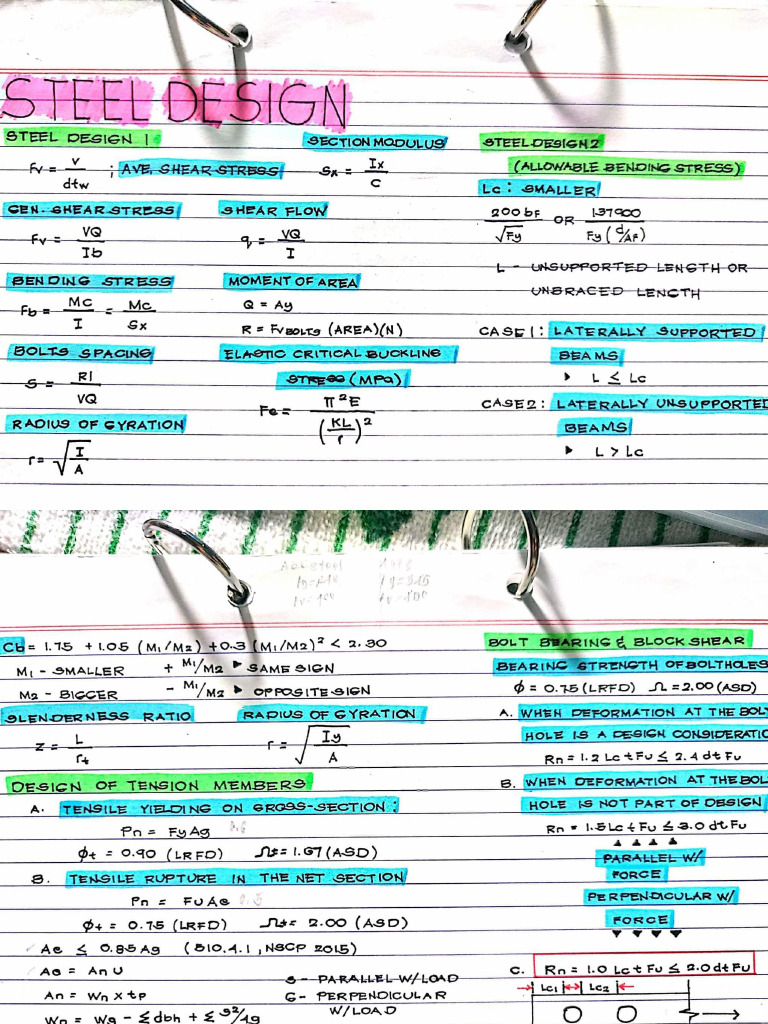 STEEL DESIGN
STEEL DESIGN 1
Fv = V/dtw ; AVE. SHEAR STRESS
SECTION MODULUS
Sx = Ix/C
GEN. SHEAR STRESS
Fv = VQ/Ib
SHEAR FLOW
q = VQ/I
BENDING STRESS
Fb = MC/I = MC/Sx
MOMENT OF AREA
Q = Ay
R = FvBOLTS (AREA)(N)
BOLTS SPACING
S = RI/VQ
ELASTIC CRITICAL BUCKLING
STRESS (MPa)
Fe = π²E/(KL/r)²
RADIUS OF GYRATION
r = √I/A
STEEL DESIGN 2
(ALLOWABLE BENDING STRESS)
Lc : SMALLER
200bF/√Fy OR 137900/Fy(d/AF)
L - UNSUPPORTED LENGTH OR
UNBRACED LENGTH
CASE 1 : LATERALLY SUPPORTED
BEAMS
▸ L ≤ Lc
CASE 2 : LATERALLY UNSUPPORTED
BEAMS
▸ L > Lc
Cb = 1.75 + 1.05 (M1/M2) + 0.3 (M1/M2)² < 2.30
M1 - SMALLER + M1/M2 ▸ SAME SIGN
M2 - BIGGER - M1/M2 ▸ OPPOSITE SIGN
SLENDERNESS RATIO
Z = L/rt
RADIUS OF GYRATION
r = √Iy/A
DESIGN OF TENSION MEMBERS
A. TENSILE YIELDING ON GROSS-SECTION :
Pn = FyAg
Φt = 0.90 (LRFD) Ωt = 1.67 (ASD)
B. TENSILE RUPTURE IN THE NET SECTION
Pn = FuAe
Φt = 0.75 (LRFD) Ωt = 2.00 (ASD)
Ae ≤ 0.85Ag (510.4.1, NSCP 2015)
Ae = AnU
An = Wn x tp
Wn = Wg - Σdbh + Σ S²/4g
S - PARALLEL W/LOAD
G - PERPENDICULAR
W/LOAD
BOLT BEARING & BLOCK SHEAR
BEARING STRENGTH OF BOLTHOLES
Φ = 0.75 (LRFD) Ω = 2.00 (ASD)
A. WHEN DEFORMATION AT THE BOL
HOLE IS A DESIGN CONSIDERATIO
Rn = 1.2 Lc t Fu ≤ 2.4 dt Fu
B. WHEN DEFORMATION AT THE BOL
HOLE IS NOT PART OF DESIGN
Rn = 1.5 Lc t Fu ≤ 3.0 dt Fu
PARALLEL W/
FORCE
PERPENDICULAR W/
FORCE
C. Rn = 1.0 Lc t Fu ≤ 2.0 dt Fu
Lc1 Lc2